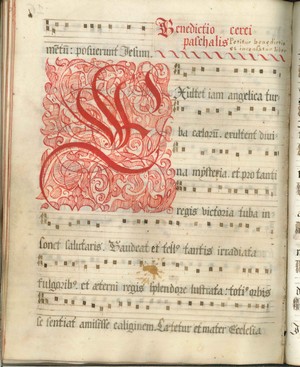 Benedictio cerei
paschalis
metū: posuerunt Jesum.
EXultet iam angelica tur
ba cælorū. exultent divi
na mysteria et pro tanti
regis victoria tuba in
sonet salutaris. Gaudeat et tell9 tantis irradiata
fulgorib9. et æterni regis splendore lustrata: toti9 orbis
se sentiat amisisse caliginem. Lætetur et mater Ecclesia